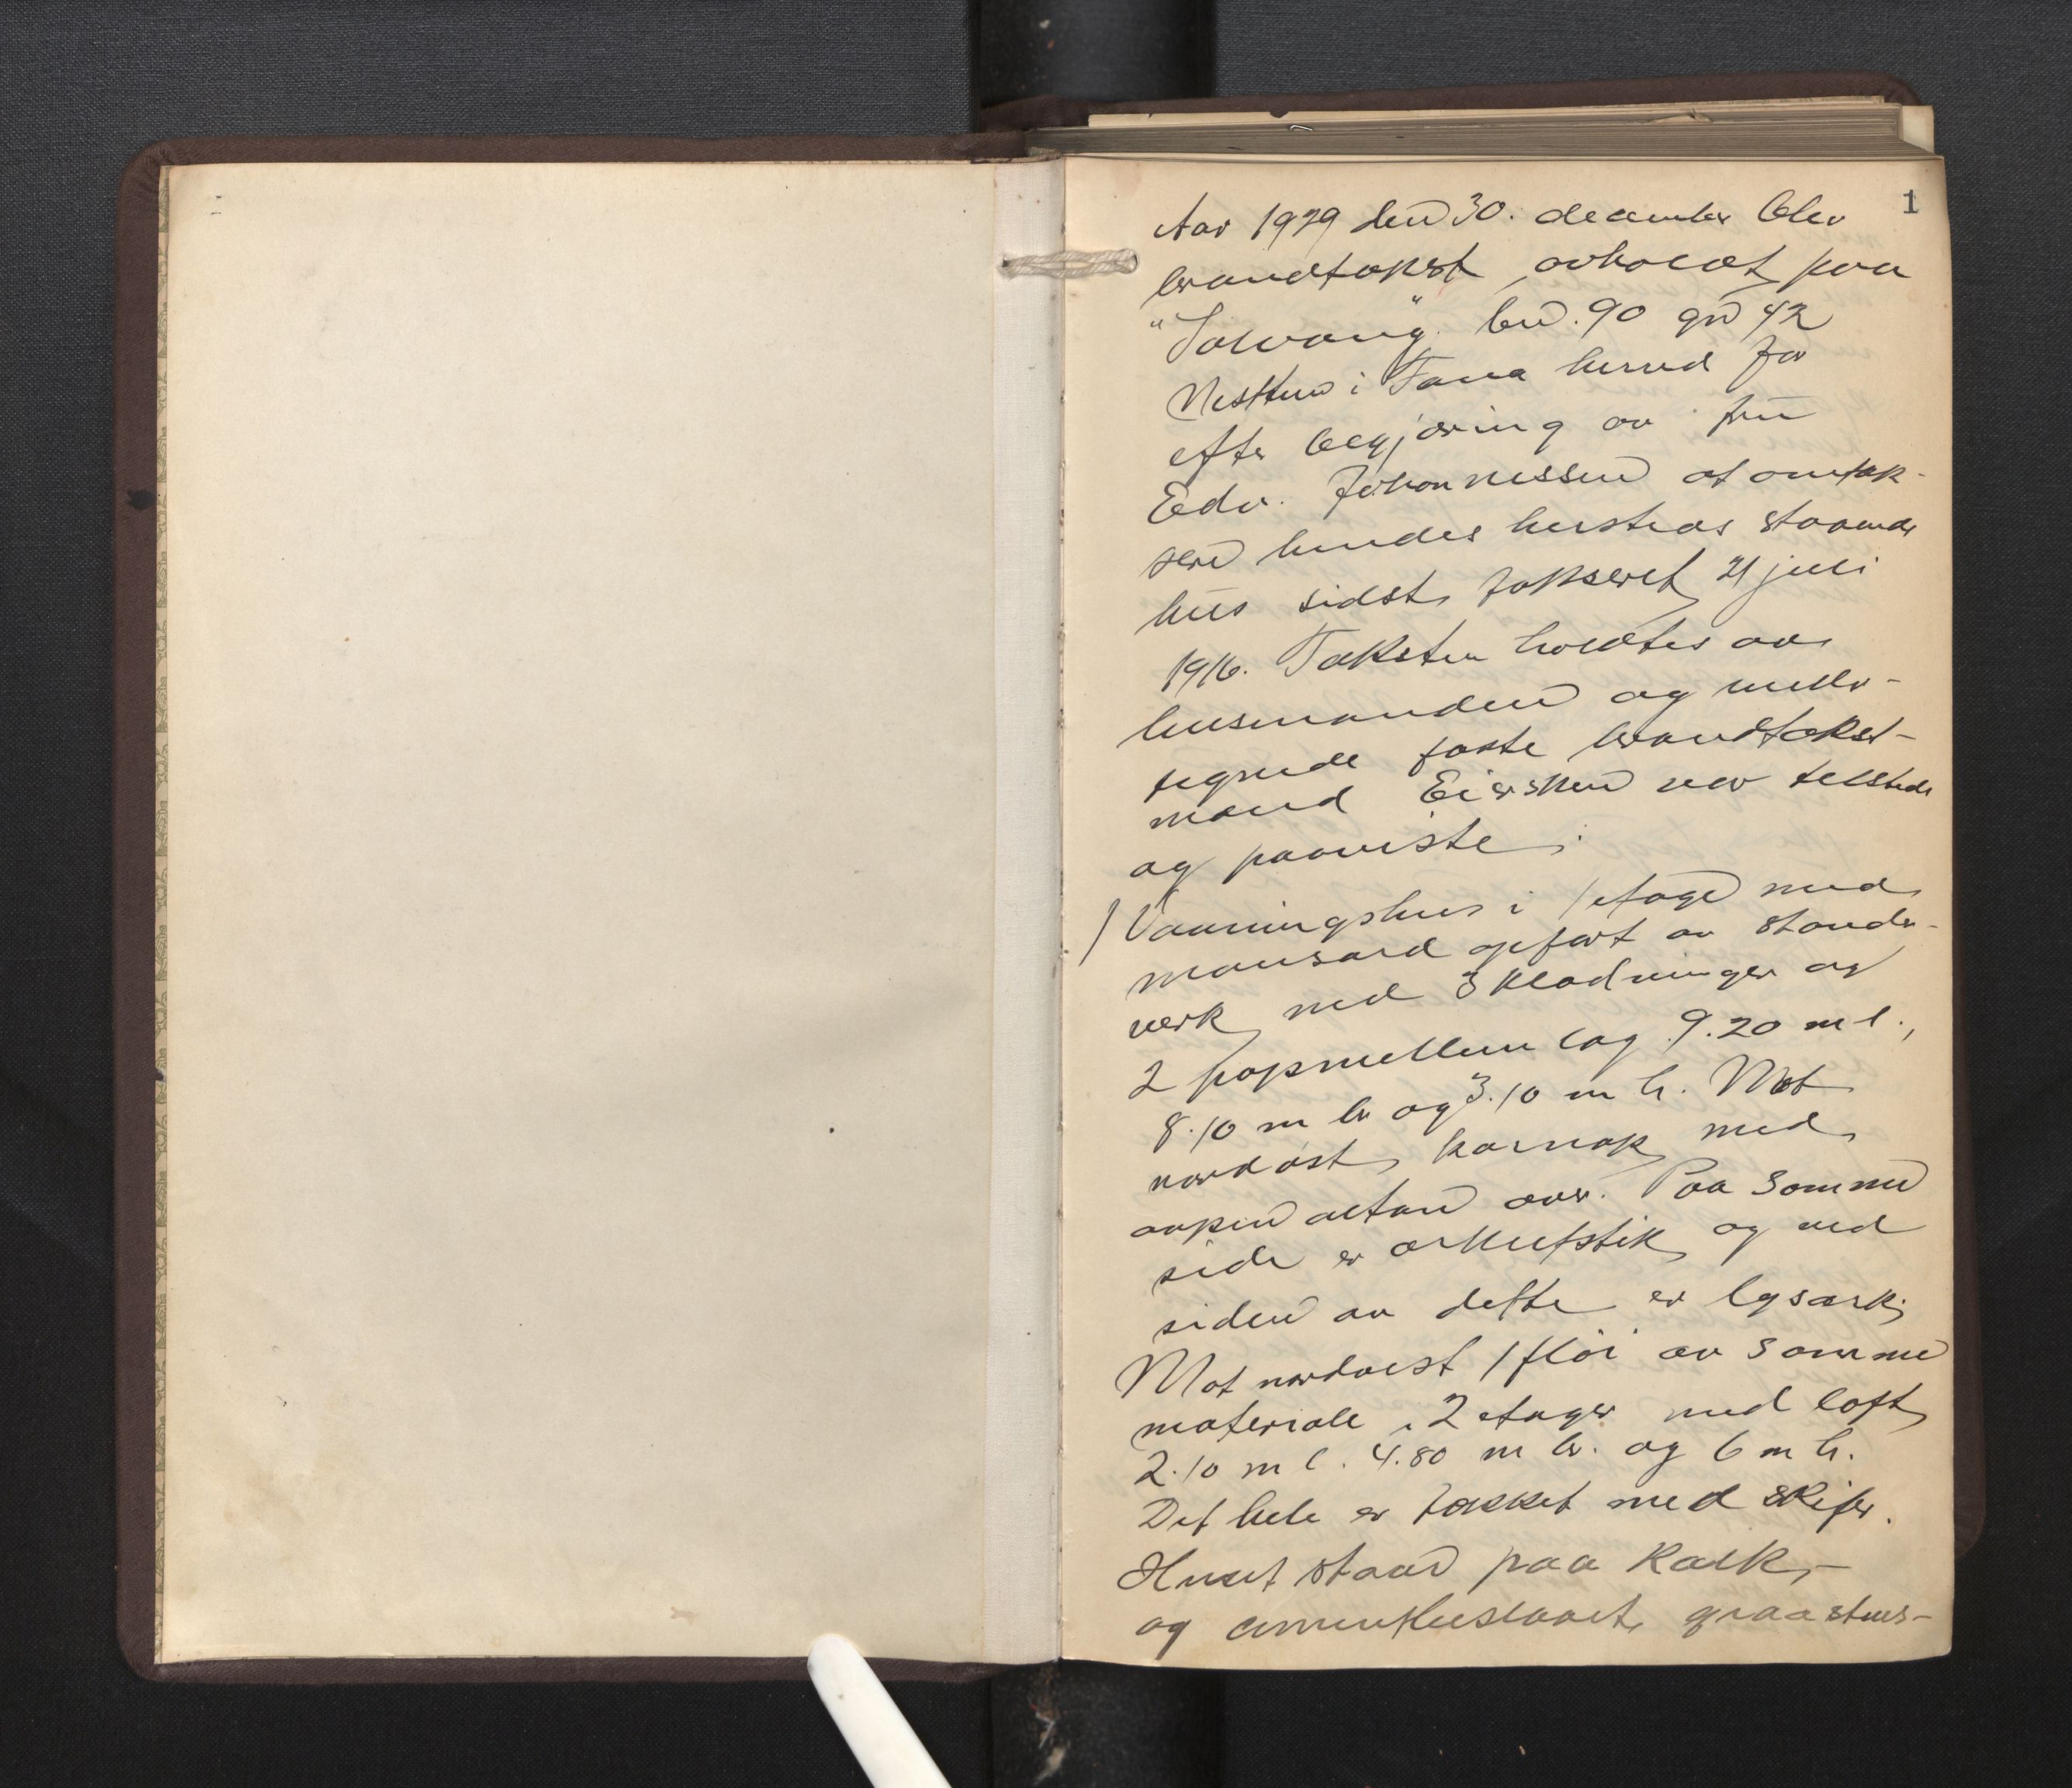 1
Aar 1929 den 30. december blev
brandtakst avholdt paa
"Solvang" bn. 90 gn 42
Nesttun i Fana herred for
efter begjæring av fru
Edv. Johannessen at omtak-
sere hendes hersteds staaende
hus sidst takseret 21 juli
1916. Taksten holdtes av
lensmanden og under-
tegnede faste brandtakst-
mænd Eiersken var tilstede
og paaviste:
1 Vaaningshus i 1 etage med
mansard opført av stender-
verk med 3 klædninger og
2 papmellemlag 9.20 m l.,
8.10 m br og 3.10 m h. Mot
nordøst karnap med
aapen altan over. Paa samme
side er arkutstik og ved
siden av dette er lysark;
Mot nordvest 1 fløi av samme
materiale i 2 etager med loft
2.10 m l. 4.80 m br. og 6 m h.
Det hele er tækket med skifer.
Huset staar paa kalk,-
og cementhuslaaret graastens-